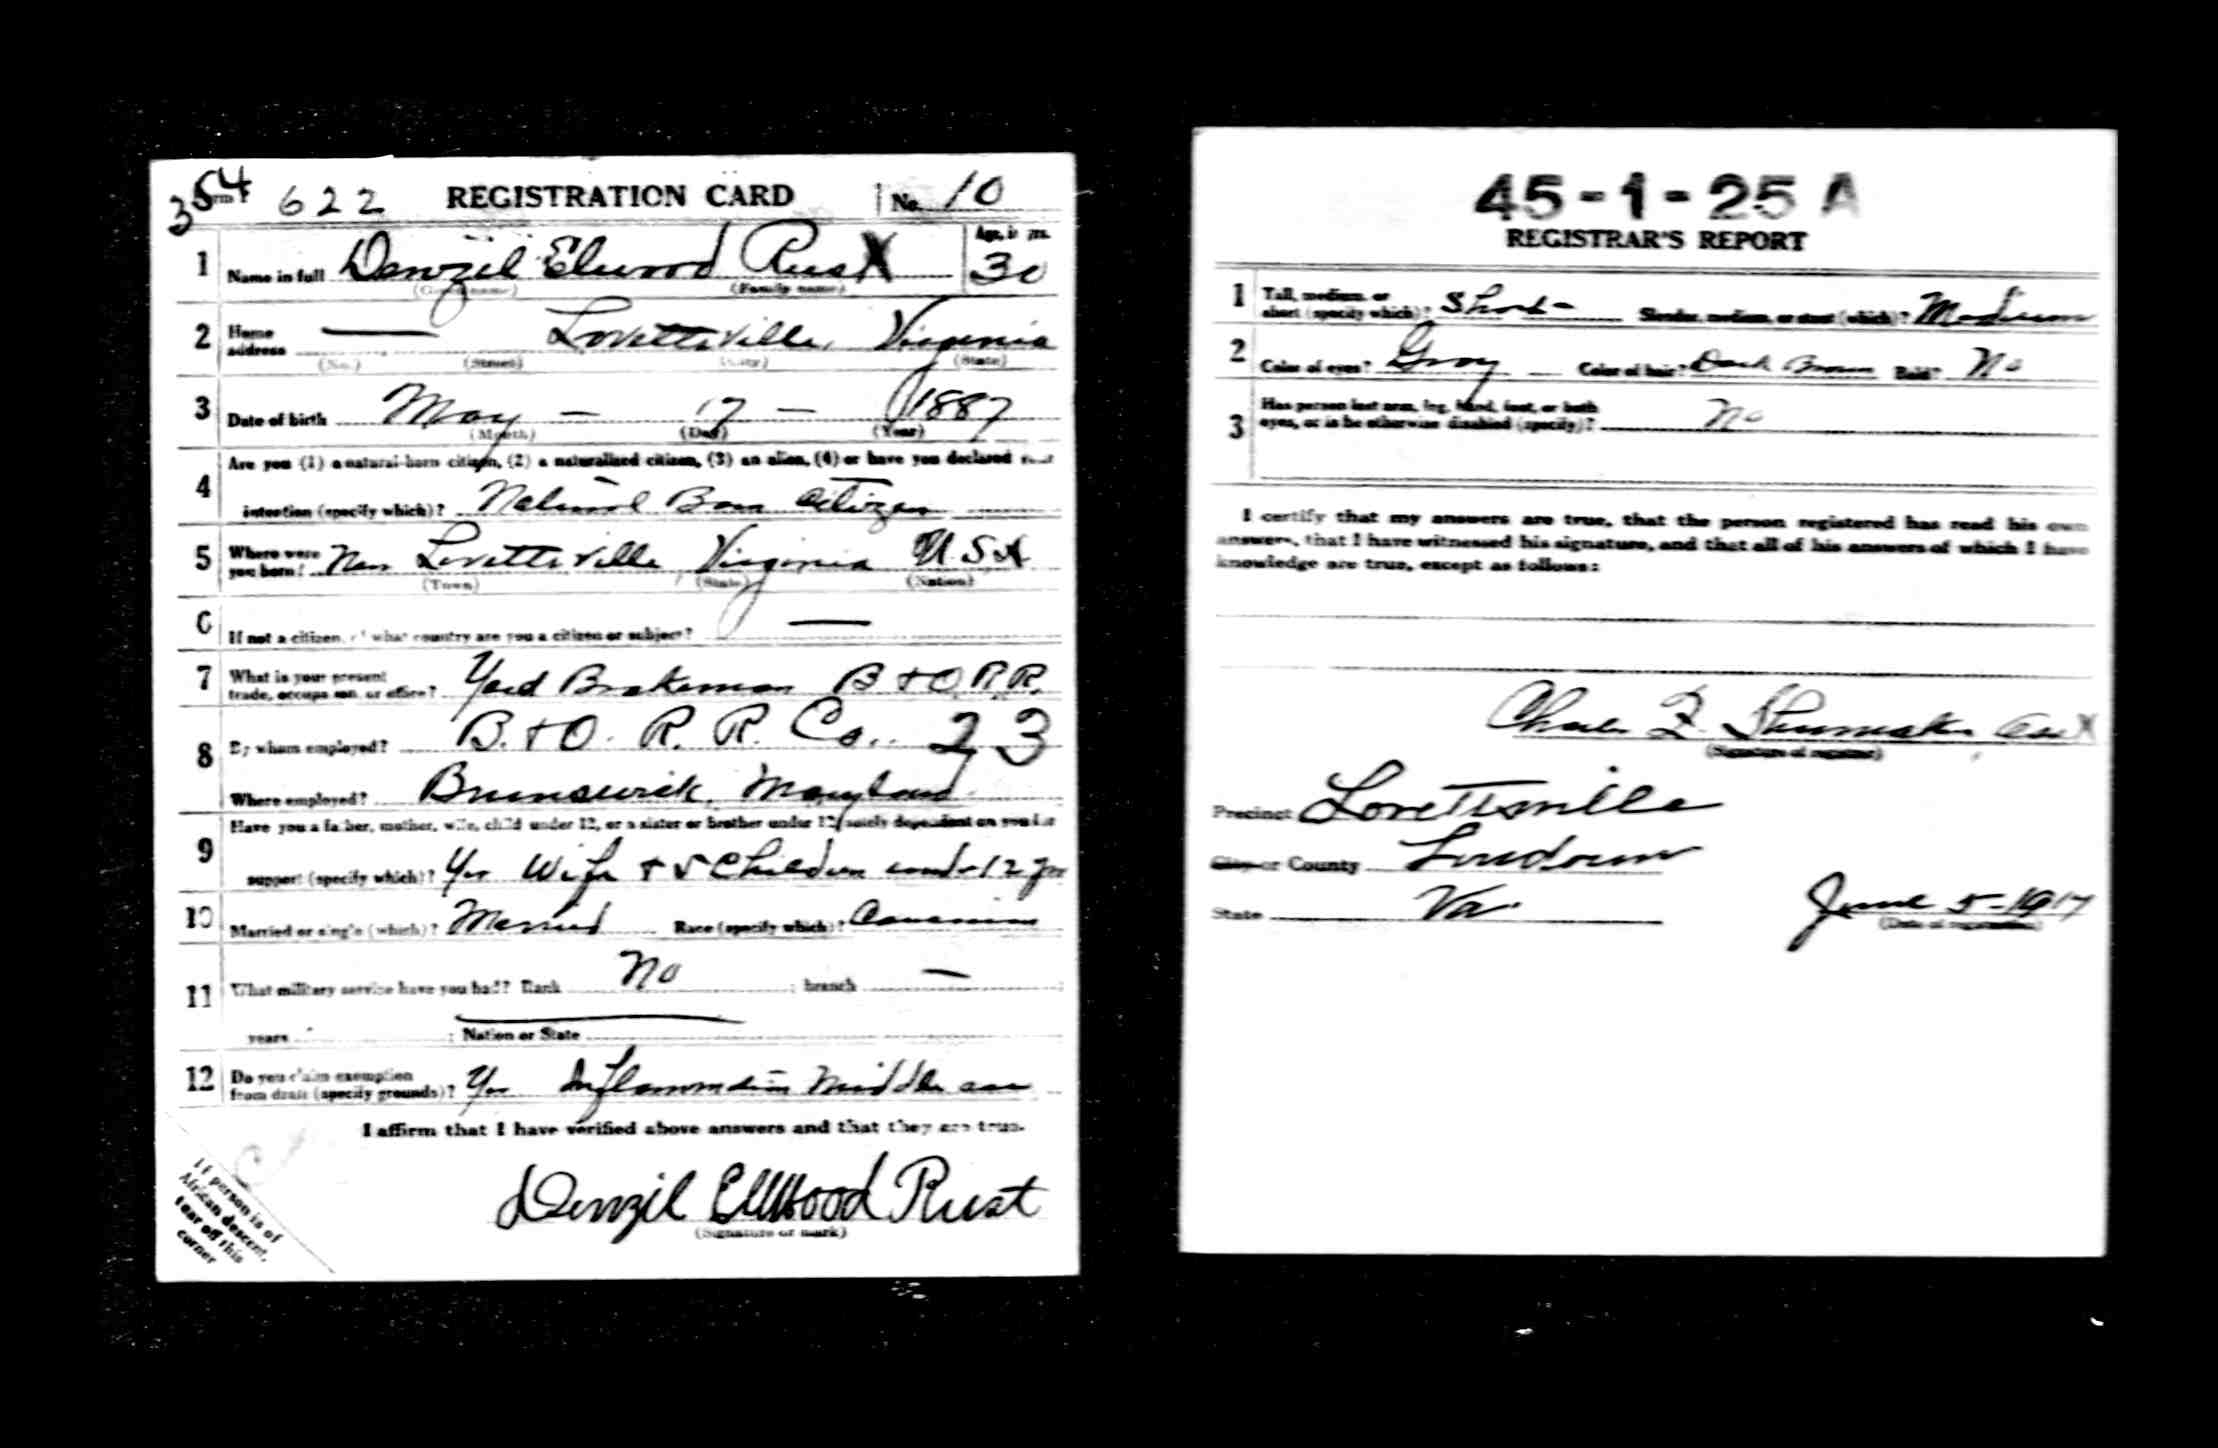 354 622 REGISTRATION CARD No. 10
1 Name in full Denzil Elwood Rust Age, in yrs. 30
(Given name) (Family name)
2 Home address — Lovettsville, Virginia
(No.) (Street) (City) (State)
3 Date of birth May — 17 — 1887
(Month) (Day) (Year)
4 Are you (1) a natural-born citizen, (2) a naturalized citizen, (3) an alien, (4) or have you declared your
intention (specify which)? Natural Born Citizen
5 Where were you born? Near Lovettsville Virginia U.S.A
(Town) (State) (Nation)
6 If not a citizen, of what country are you a citizen or subject? —
7 What is your present trade, occupation, or office? Yard Brakeman B + O. R.R.
8 By whom employed? B. + O. R. R. Co. 23
Where employed? Brunswick, Maryland
9 Have you a father, mother, wife, child under 12, or a sister or brother under 12, solely dependent on you for
support (specify which)? Yes Wife + 5 Children under 12 yrs
10 Married or single (which)? Married Race (specify which)? Caucasian
11 What military service have you had? Rank No ; branch —
years ; Nation or State
12 Do you claim exemption from draft (specify grounds)? Yes Inflammation Middle ear
I affirm that I have verified above answers and that they are true.
Denzil Ellwood Rust
(Signature or mark)
If person is of
African descent,
tear off this
corner
45-1-25 A
REGISTRAR'S REPORT
1 Tall, medium, or short (specify which)? Short Slender, medium, or stout (which)? Medium
2 Color of eyes? Gray Color of hair? Dark Brown Bald? No
3 Has person lost arm, leg, hand, foot, or both
eyes, or is he otherwise disabled (specify)? No
I certify that my answers are true, that the person registered has read his own
answers, that I have witnessed his signature, and that all of his answers of which I have
knowledge are true, except as follows:
Charles F. Shumaker
(Signature of registrar)
Precinct Lovettsville
City or County Loudoun
State Va. June 5-1917
(Date of registration)